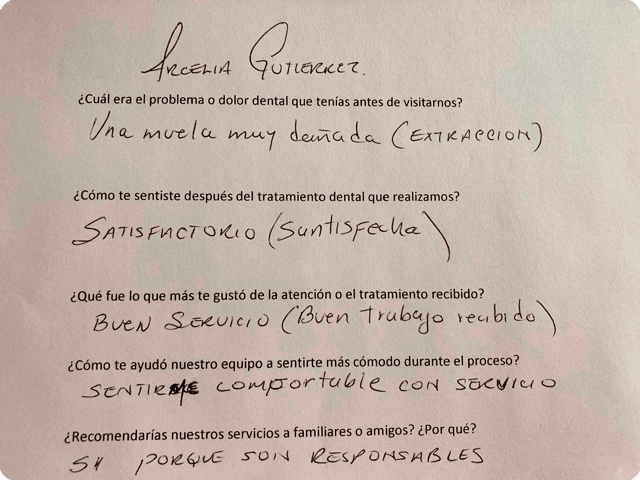 Arcelia Gutierrez.
¿Cuál era el problema o dolor dental que tenías antes de visitarnos?
Una muela muy dañada (EXTRACCION)
¿Cómo te sentiste después del tratamiento dental que realizamos?
SATISFACTORIO (Suntisfecha)
¿Qué fue lo que más te gustó de la atención o el tratamiento recibido?
BUEN SERVICIO (Buen trabajo recibido)
¿Cómo te ayudó nuestro equipo a sentirte más cómodo durante el proceso?
SENTIRME comfortable CON SERVICIO
¿Recomendarías nuestros servicios a familiares o amigos? ¿Por qué?
SI PORQUE SON RESPONSABLES